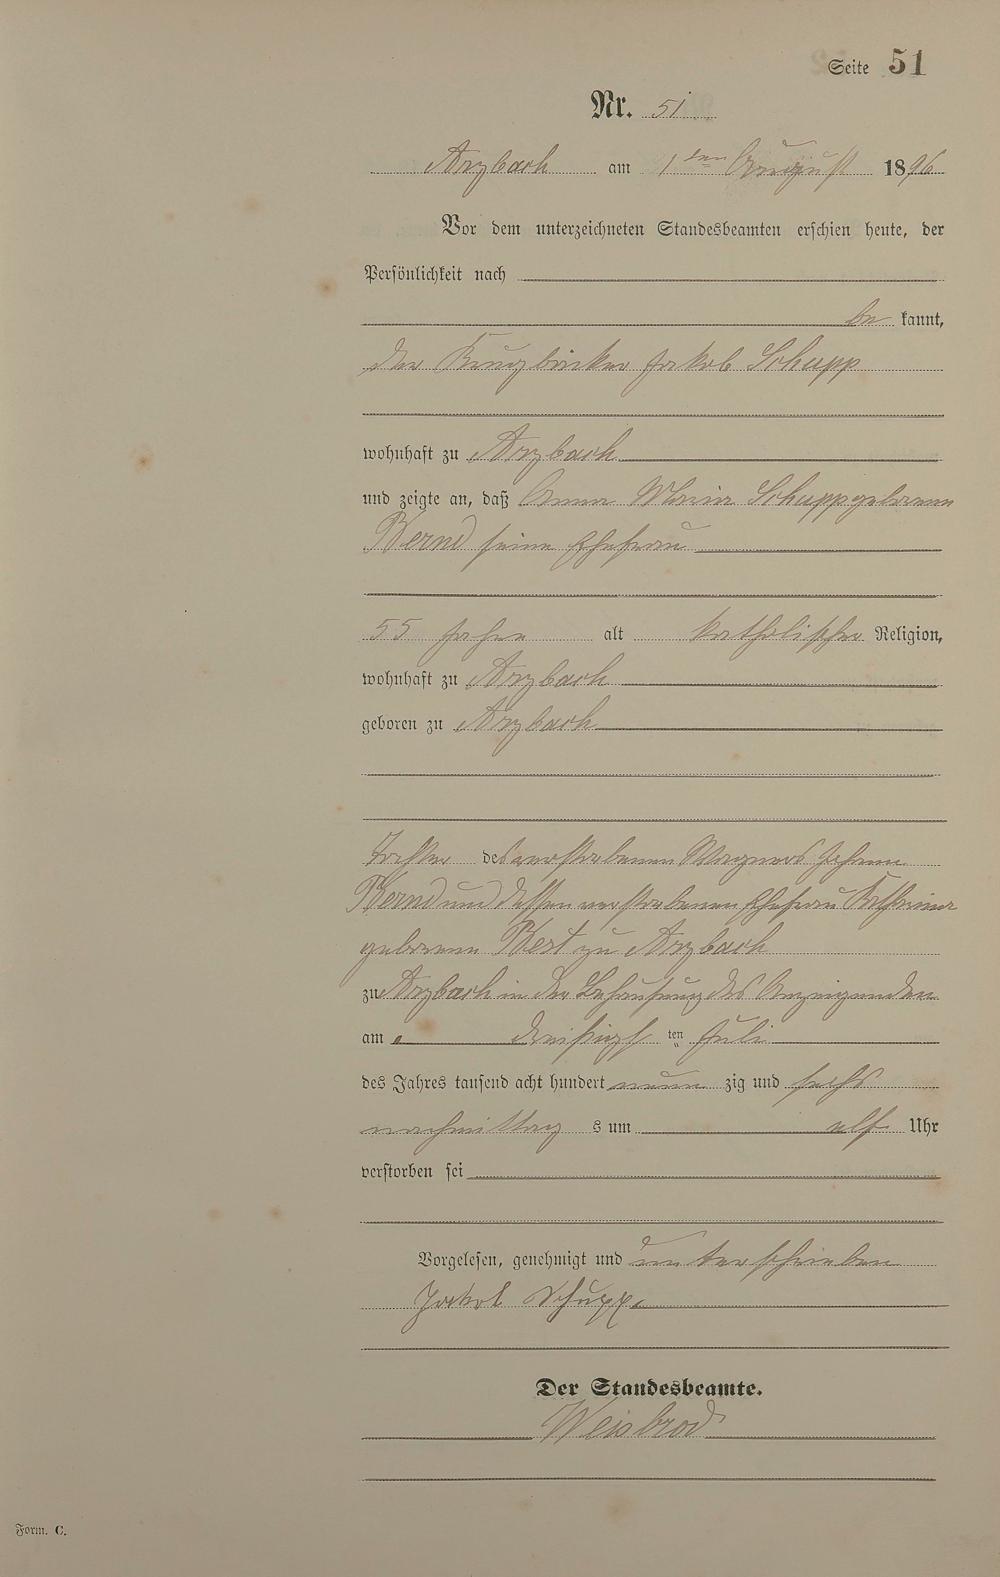 Seite 51
Nr. 51
Arzbach am 1ten August 1896
Vor dem unterzeichneten Standesbeamten erschien heute, der
Persönlichkeit nach
be kannt,
der Krugbäcker Jakob Schupp
wohnhaft zu Arzbach
und zeigte an, daß Anna Maria Schupp geborene
Bernd seine Ehefrau
55 Jahre alt katholischer Religion,
wohnhaft zu Arzbach
geboren zu Arzbach
Tochter des verstorbenen Wagners Johann
Bernd und dessen verstorbenen Ehefrau Katharina
geborene Best zu Arzbach
zu Arzbach in der Behausung des Anzeigenden
am dreißigsten Juli
des Jahres tausend acht hundert neun zig und sechs
nachmittag s um elf Uhr
verstorben sei
Vorgelesen, genehmigt und unterschrieben
Jakob Schupp
Der Standesbeamte.
Weisbrod
Form. C.